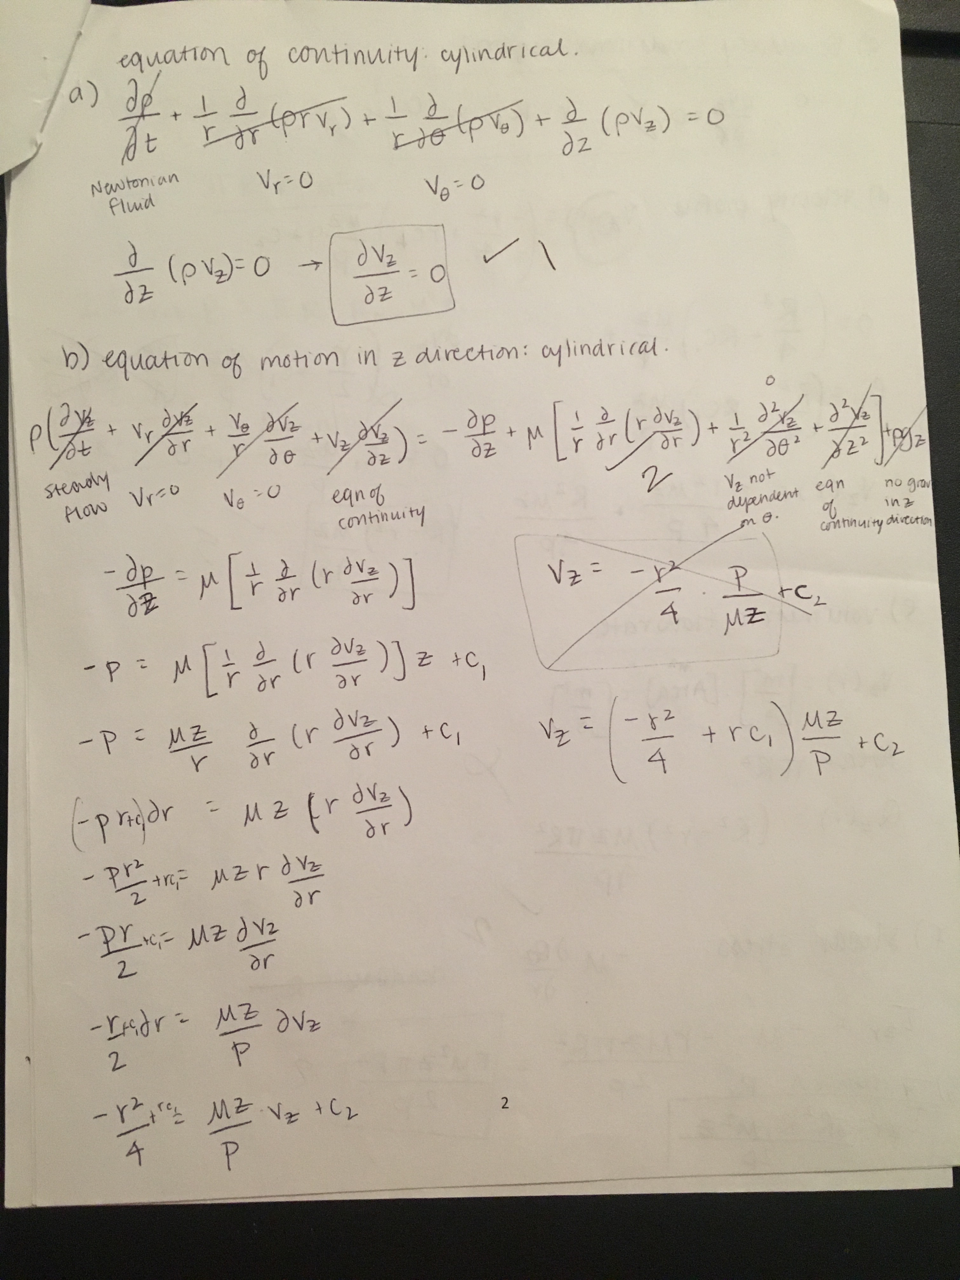 equation of continuity: cylindrical.
a) ∂ρ/∂t + 1/r ∂/∂r (ρrVr) + 1/r ∂/∂θ (ρVθ) + ∂/∂z (ρVz) = 0
Newtonian fluid Vr=0 Vθ=0
∂/∂z (ρVz)=0 → ∂Vz/∂z = 0 ✓ 1
b) equation of motion in z direction: cylindrical.
ρ(∂Vz/∂t + Vr ∂Vz/∂r + Vθ/r ∂Vz/∂θ + Vz ∂Vz/∂z) = -∂p/∂z + μ[1/r ∂/∂r (r ∂Vz/∂r) + 1/r² ∂²Vz/∂θ² + ∂²Vz/∂z²] + ρgz
0
✓ 2
steady flow Vr=0 Vθ=0 eqn of continuity Vz not dependent on θ. eqn of continuity no grav in z direction
-∂p/∂z = μ[1/r ∂/∂r (r ∂Vz/∂r)]
Vz = -r²/4 · P/μz + C2
-p = μ[1/r ∂/∂r (r ∂Vz/∂r)] z + C1
-p = μz/r ∂/∂r (r ∂Vz/∂r) + C1
Vz = (-r²/4 + rC1) μz/p + C2
(-pr+C1)∂r = μz (r ∂Vz/∂r)
-pr²/2 + rC1 = μzr ∂Vz/∂r
-pr/2 + C1 = μz ∂Vz/∂r
-r/2 + C1 ∂r = μz/p ∂Vz
-r²/4 + rC1 = μz/p · Vz + C2
2